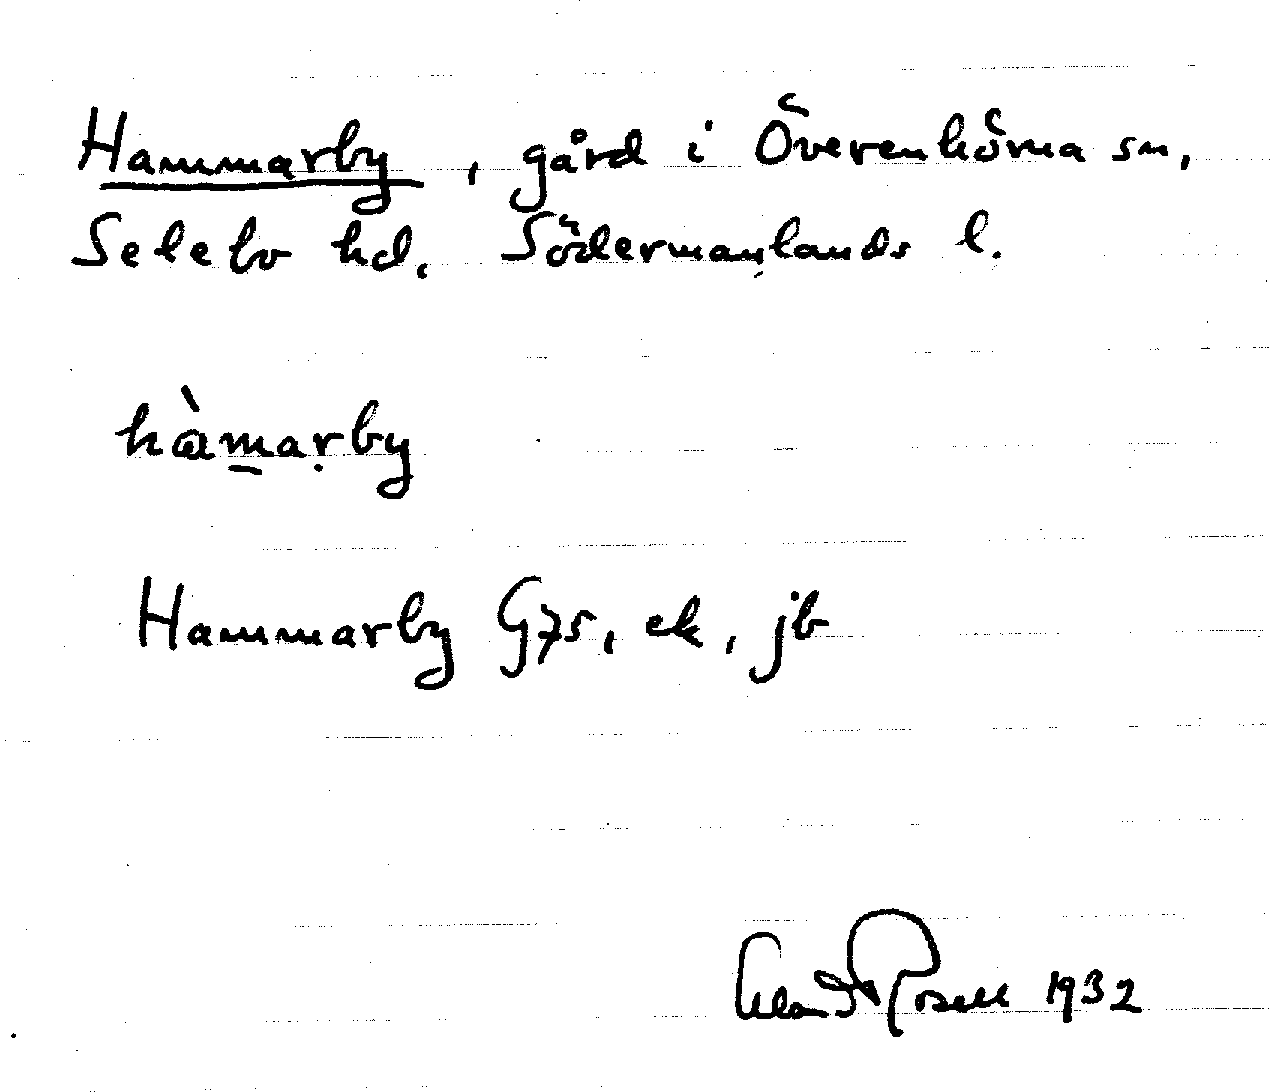 Hammarby, gård i Överenhörna sn,
Selebo hd. Södermanlands l.
hàmarby
Hammarby G75, ek, jb
Rosell 1932